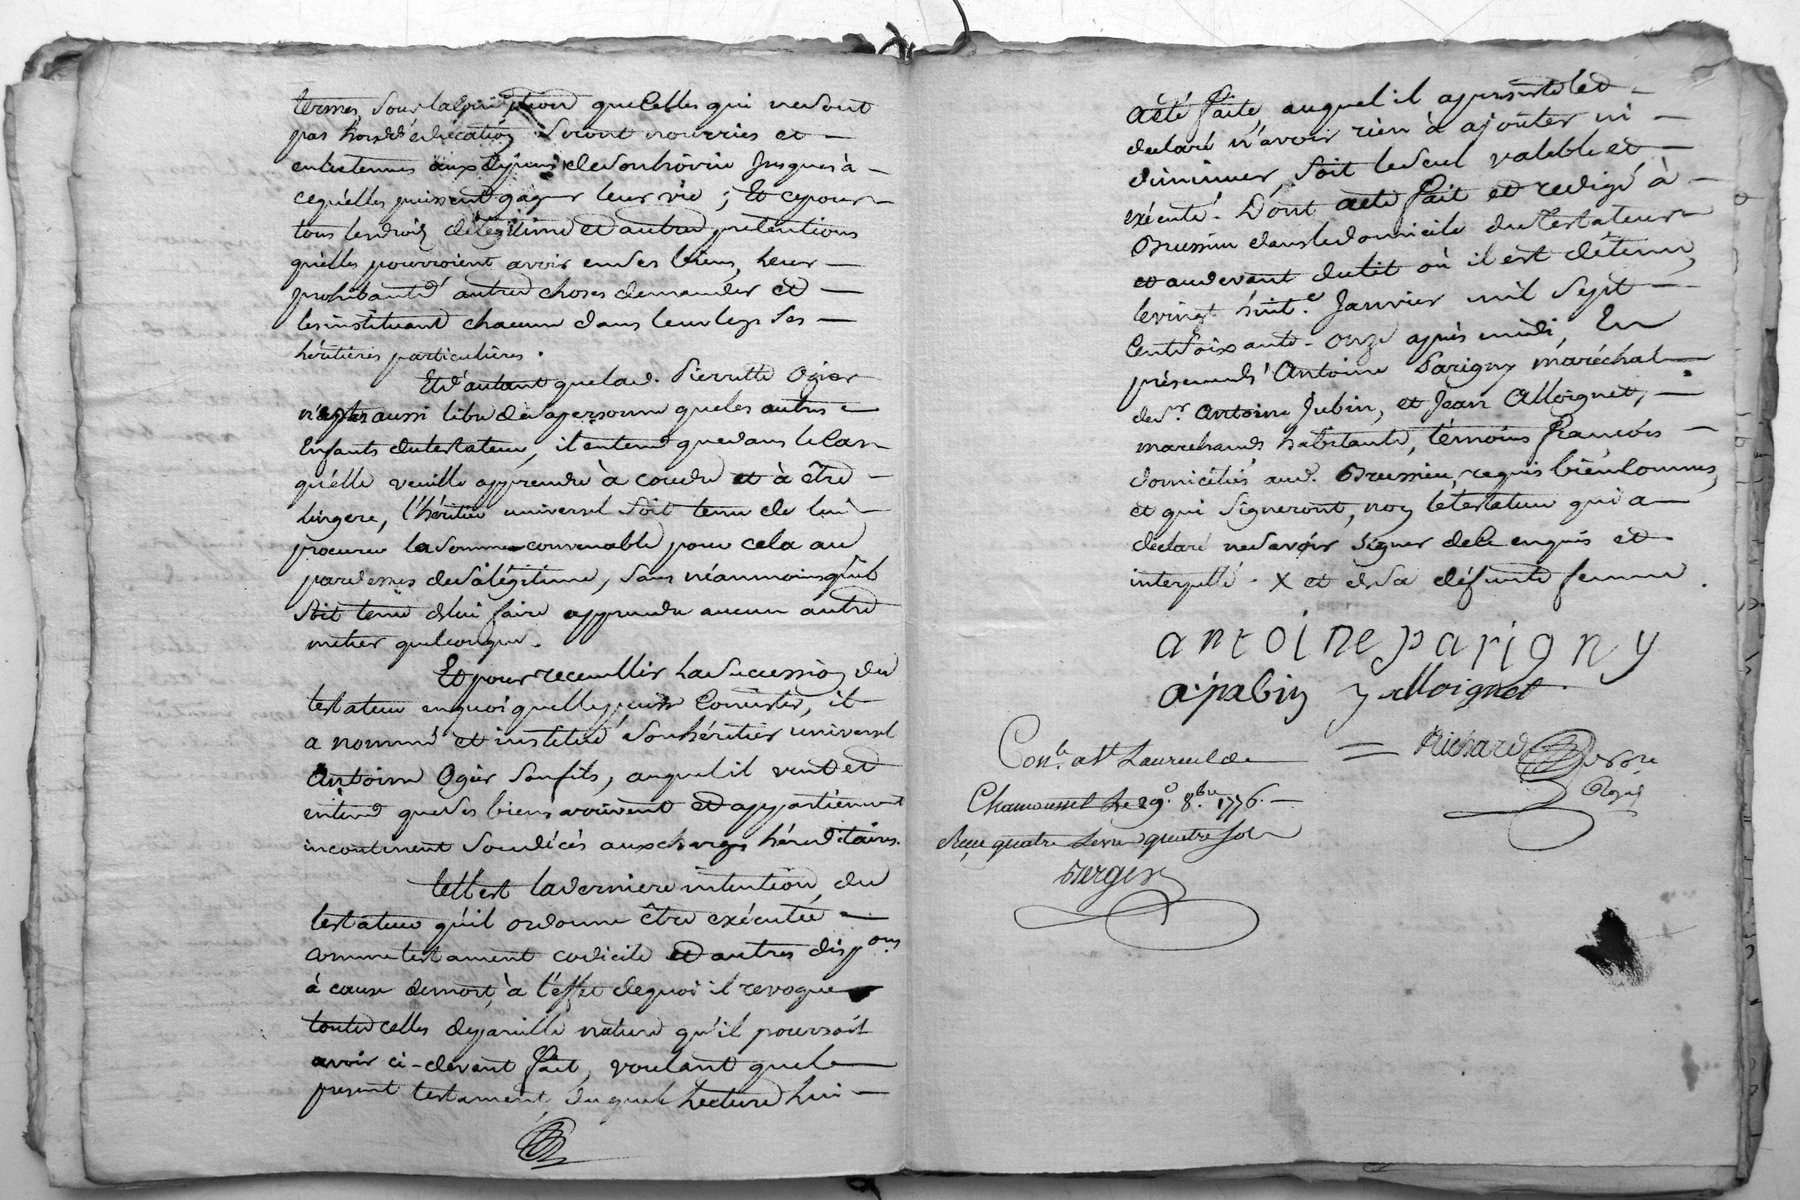 termes, sous la condition que celles qui ne sont
pas hors d'éducation seront nourries et —
entretenues aux dépens de son hoirie jusques à —
ce qu'elles puissent gagner leur vie ; Et ce pour —
tous les droits de légitime et autres prétentions
qu'elles pourroient avoir en ses biens, leur —
prohibant d'autres choses demander et —
les instituant chacune dans leur legs ses —
héritières particulières .
Et d'autant que lad. Pierrette Ogier
n'est pas aussi libre de sa personne que les autres —
Enfants du testateur, il entend que dans le cas
qu'elle veuille apprendre à coudre et à être —
lingere, l'héritier universel soit tenu de lui —
procurer la somme convenable pour cela au
par dessus de sa légitime, sans néanmoins qu'il
soit tenu de lui faire apprendre aucun autre
métier quelconque .
Et pour recueillir la succession du
testateur en quoi qu'elle puisse consister, il
a nommé et institué son héritier universel
Antoine Ogier son fils, auquel il veut et
entend que ses biens arrivent et appartiennent
incontinent son décès aux charges héréditaires.
Telle est la derniere intention du
testateur qu'il ordonne être exécutée —
comme testament codicile et autres disp.ons
à cause de mort, à l'effet de quoi il revoque
toutes celles de pareille nature qu'il pourroit
avoir ci-devant fait, voulant que le
present testament, duquel lecture lui —
a été faite, auquel il a persisté et —
declaré n'avoir rien à ajoûter ni —
diminuer, soit le seul valable et —
exécuté . Dont acte fait et redigé à —
Brussieu dans le domicile du testateur
et au devant du lit où il est détenu,
le vingt huit.e Janvier mil sept —
cent soixante-onze après midi, En
présence d'Antoine Parigny maréchal —
de Sr Antoine Jubin, et Jean Alloignet, —
marchands habitants, témoins français —
domiciliés aud. Brussieu, requis bien connus,
et qui signeront, non le testateur qui a —
déclaré ne savoir signer de ce enquis et
interpellé . X et de sa défunte femme .
antoine parigny
a. jubin J alloignet
= Richard
Con.le a St Laurent de
Chamousset Le 29.e 8.bre 1776. —
Reçu quatre Livres quatre sols